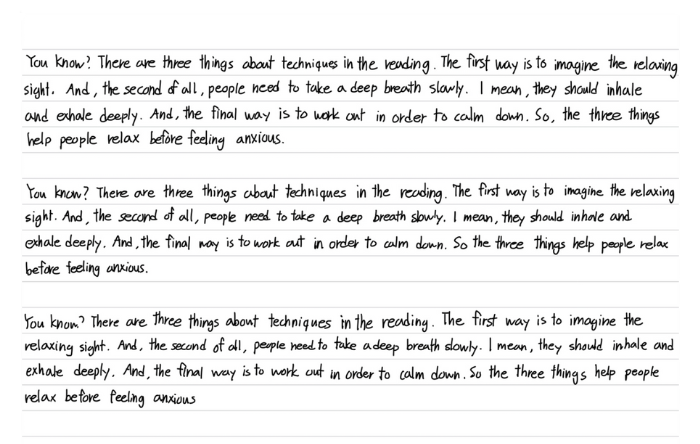 You know? There are three things about techniques in the reading. The first way is to imagine the relaxing
sight. And, the second of all, people need to take a deep breath slowly. I mean, they should inhale
and exhale deeply. And, the final way is to work out in order to calm down. So, the three things
help people relax before feeling anxious.
You know? There are three things about techniques in the reading. The first way is to imagine the relaxing
sight. And, the second of all, people need to take a deep breath slowly. I mean, they should inhale and
exhale deeply. And, the final way is to work out in order to calm down. So the three things help people relax
before feeling anxious.
You know? There are three things about techniques in the reading. The first way is to imagine the
relaxing sight. And, the second of all, people need to take a deep breath slowly. I mean, they should inhale and
exhale deeply. And, the final way is to work out in order to calm down. So the three things help people
relax before feeling anxious